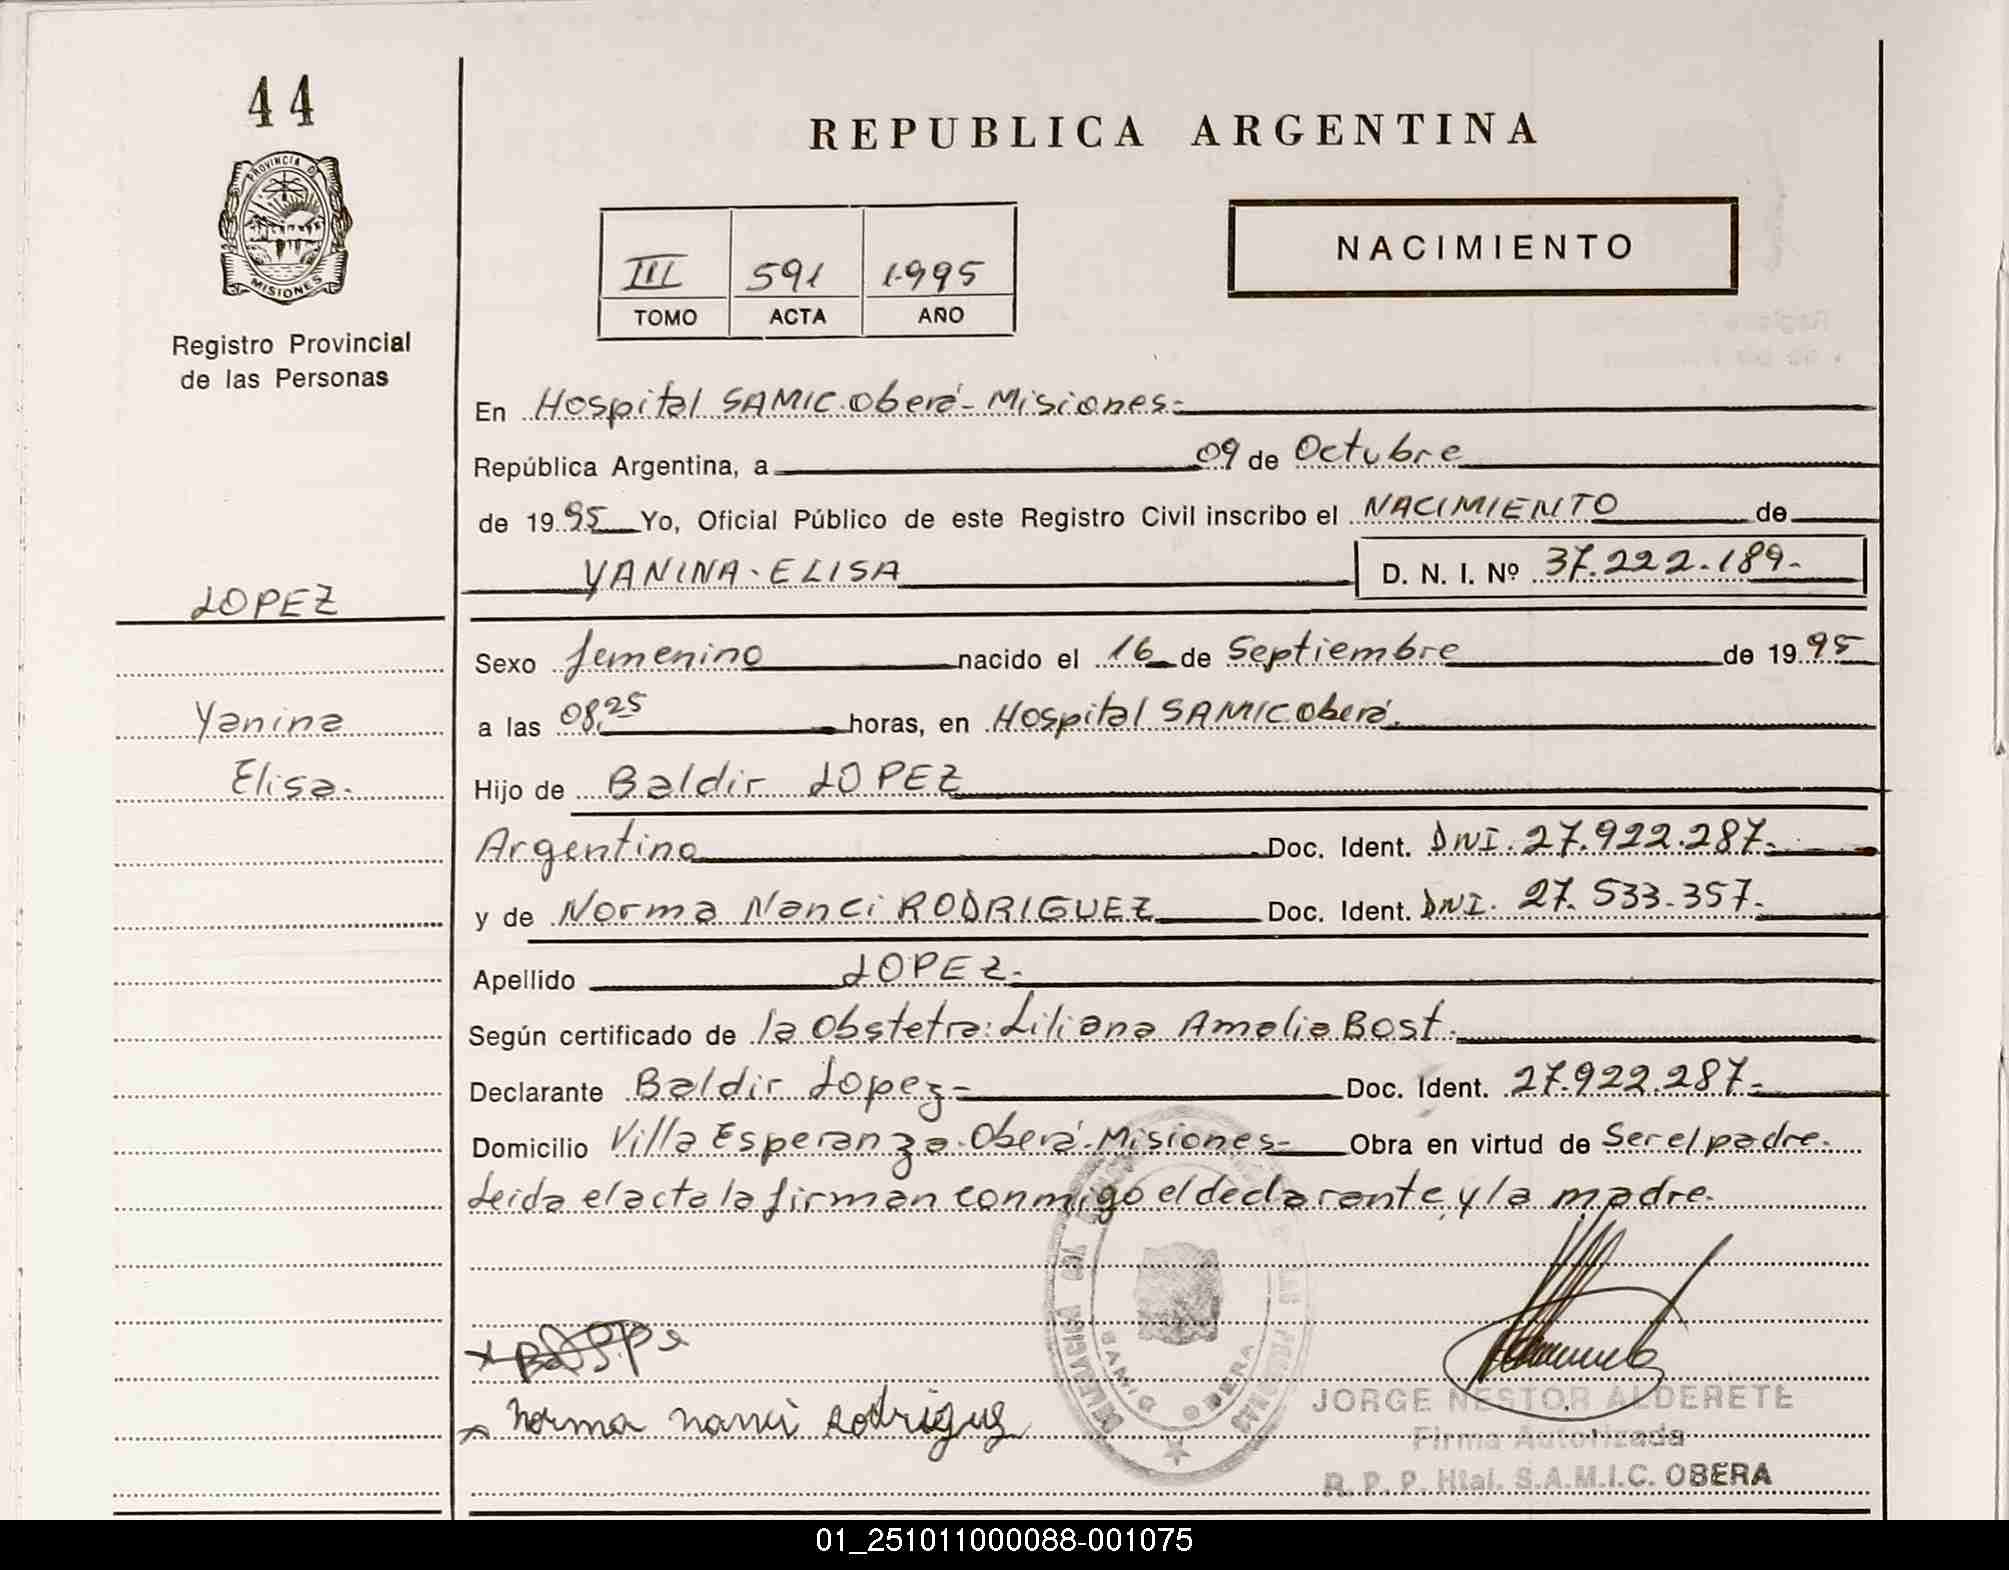 44
PROVINCIA DE
MISIONES
Registro Provincial
de las Personas
LOPEZ
Yanina
Elisa.
REPUBLICA ARGENTINA
III 591 1.995
TOMO ACTA AÑO
NACIMIENTO
En Hospital SAMIC Oberá - Misiones.
República Argentina, a 09 de Octubre
de 1995 Yo, Oficial Público de este Registro Civil inscribo el NACIMIENTO de
YANINA - ELISA D. N. I. Nº 37.222.189.-
Sexo femenino nacido el 16 de Septiembre de 1995
a las 08,25 horas, en Hospital SAMIC Oberá.
Hijo de Baldir LOPEZ
Argentino Doc. Ident. DNI. 27.922.287.-
y de Norma Nanci RODRIGUEZ Doc. Ident. DNI. 27.533.357.-
Apellido LOPEZ.-
Según certificado de la Obstetra: Liliana Amalia Bost.
Declarante Baldir Lopez - Doc. Ident. 27.922.287.-
Domicilio Villa Esperanza - Oberá - Misiones - Obra en virtud de Ser el padre.
Leida el acta la firman conmigo el declarante y la madre.
SAMIC OBERA
Norma nanci Rodriguez
JORGE NESTOR ALDERETE
Firma Autorizada
R. P. P. Htal. S.A.M.I.C. OBERA
01_251011000088-001075